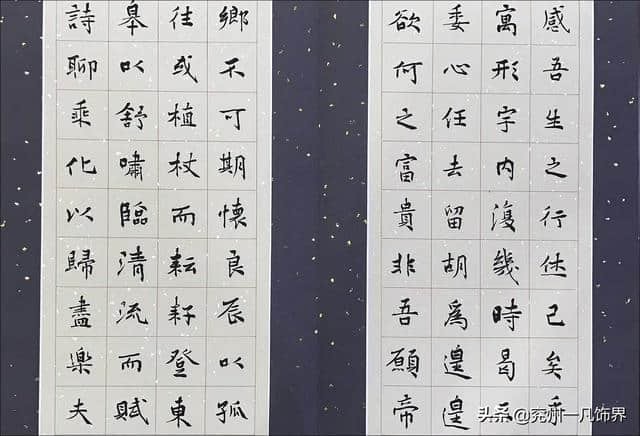 感吾生之行休已矣乎
寓形宇内復幾時曷不
委心任去留胡爲遑遑
欲何之富貴非吾願帝
鄉不可期懷良辰以孤
往或植杖而耘耔登東
皋以舒嘯臨清流而賦
詩聊乘化以歸盡樂夫
头条 @兖州一凡饰界